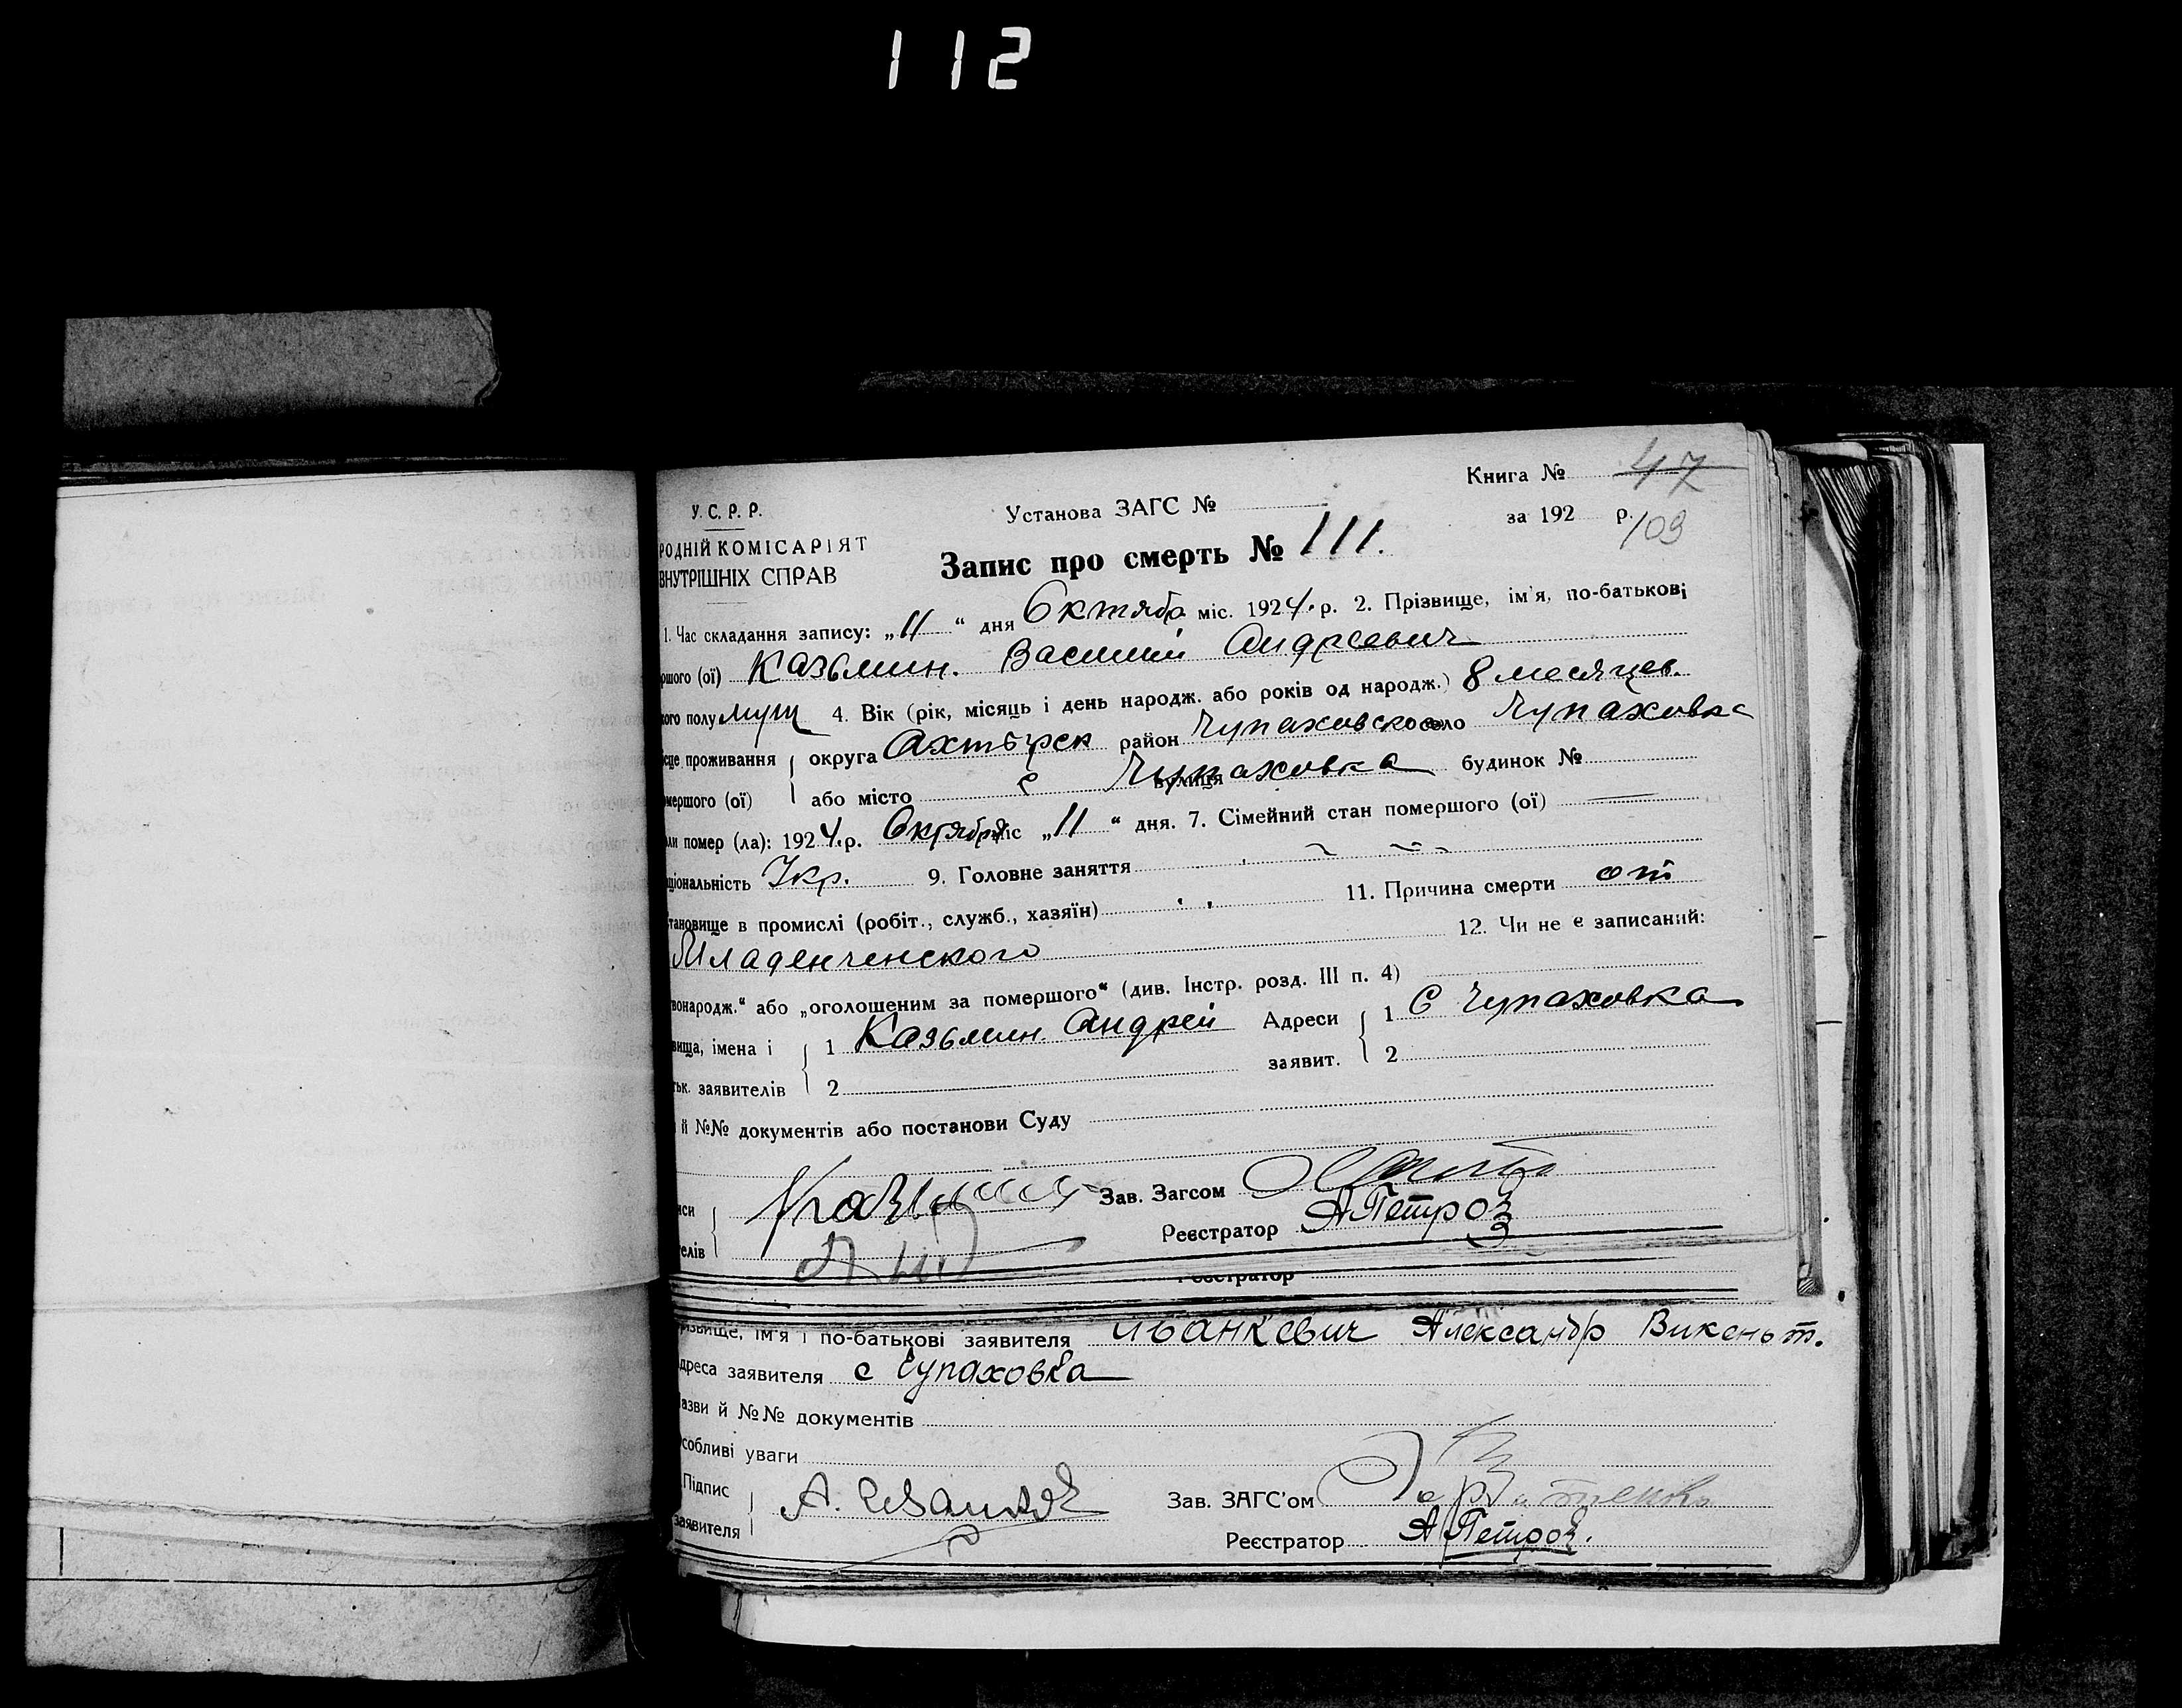 112
Книга № 47
У. С. Р. Р.
Установа ЗАГС №
за 192 р.
103
РОДНІЙ КОМІСАРІЯТ
ВНУТРІШНІХ СПРАВ
Запис про смерть № 111.
1. Час складання запису: „11“ дня Октября міс. 1924. р. 2. Прізвище, ім'я, по-батькові
ршого (ої) Казьмин. Василий Андреевич
кого полу муж 4. Вік (рік, місяць і день народж. або років од народж.) 8 месяцев.
сце проживання округа Ахтырск район Чупаховско село Чупаховка
омершого (ої) або місто с Чупаховка вулиця будинок №
ли помер (ла): 1924. р. Октября міс „11“ дня. 7. Сімейний стан помершого (ої) —
ціональність Укр. 9. Головне заняття
становище в промислі (робіт., служб., хазяїн) 11. Причина смерти от
Младенченского 12. Чи не є записаний:
вонародж.“ або „оголошеним за помершого“ (див. Інстр. розд. III п. 4)
вища, імена і 1 Казьмин. Андрей Адреси 1 С Чупаховка
тьк. заявителів 2 заявит. 2
й №№ документів або постанови Суду
иси Казьмин Зав. Загсом
телів Реєстратор А Петров
Реєстратор
різвище, ім'я і по-батькові заявителя Иванкевич Александр Викеньт.
дреса заявителя с Чупаховка
азви й №№ документів
собливі уваги
Підпис А. Иванкев Зав. ЗАГС'ом
заявителя Реєстратор А Петров.